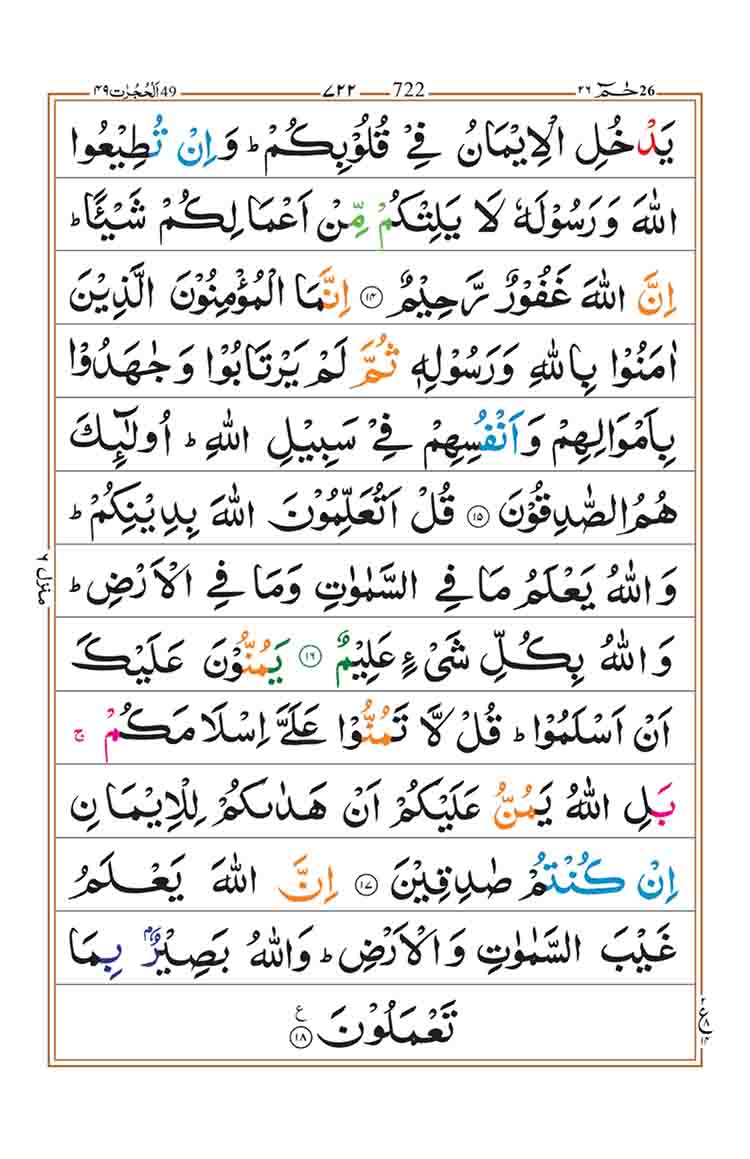 اَلْحُجُرٰت ٤٩ 49 ٧٢٢ 722 حٰمٓ ٢٦ 26
يَدْخُلِ الْاِيْمَانُ فِيْ قُلُوْبِكُمْ ؕ وَاِنْ تُطِيْعُوا
اللّٰهَ وَرَسُوْلَهٗ لَا يَلِتْكُمْ مِّنْ اَعْمَالِكُمْ شَيْـًٔا ؕ
اِنَّ اللّٰهَ غَفُوْرٌ رَّحِيْمٌ ۝۱۴ اِنَّمَا الْمُؤْمِنُوْنَ الَّذِيْنَ
اٰمَنُوْا بِاللّٰهِ وَرَسُوْلِهٖ ثُمَّ لَمْ يَرْتَابُوْا وَجٰهَدُوْا
بِاَمْوَالِهِمْ وَاَنْفُسِهِمْ فِيْ سَبِيْلِ اللّٰهِ ؕ اُولٰٓئِكَ
هُمُ الصّٰدِقُوْنَ ۝۱۵ قُلْ اَتُعَلِّمُوْنَ اللّٰهَ بِدِيْنِكُمْ ؕ
وَاللّٰهُ يَعْلَمُ مَا فِي السَّمٰوٰتِ وَمَا فِي الْاَرْضِ ؕ
منزل ٦
وَاللّٰهُ بِكُلِّ شَيْءٍ عَلِيْمٌ ۝۱۶ يَمُنُّوْنَ عَلَيْكَ
اَنْ اَسْلَمُوْا ؕ قُلْ لَّا تَمُنُّوْا عَلَيَّ اِسْلَامَكُمْ ۚ
بَلِ اللّٰهُ يَمُنُّ عَلَيْكُمْ اَنْ هَدٰىكُمْ لِلْاِيْمَانِ
اِنْ كُنْتُمْ صٰدِقِيْنَ ۝۱۷ اِنَّ اللّٰهَ يَعْلَمُ
غَيْبَ السَّمٰوٰتِ وَالْاَرْضِ ؕ وَاللّٰهُ بَصِيْرٌۢ بِمَا
تَعْمَلُوْنَ ۝۱۸ ع
٢ ع ٨ ١٤